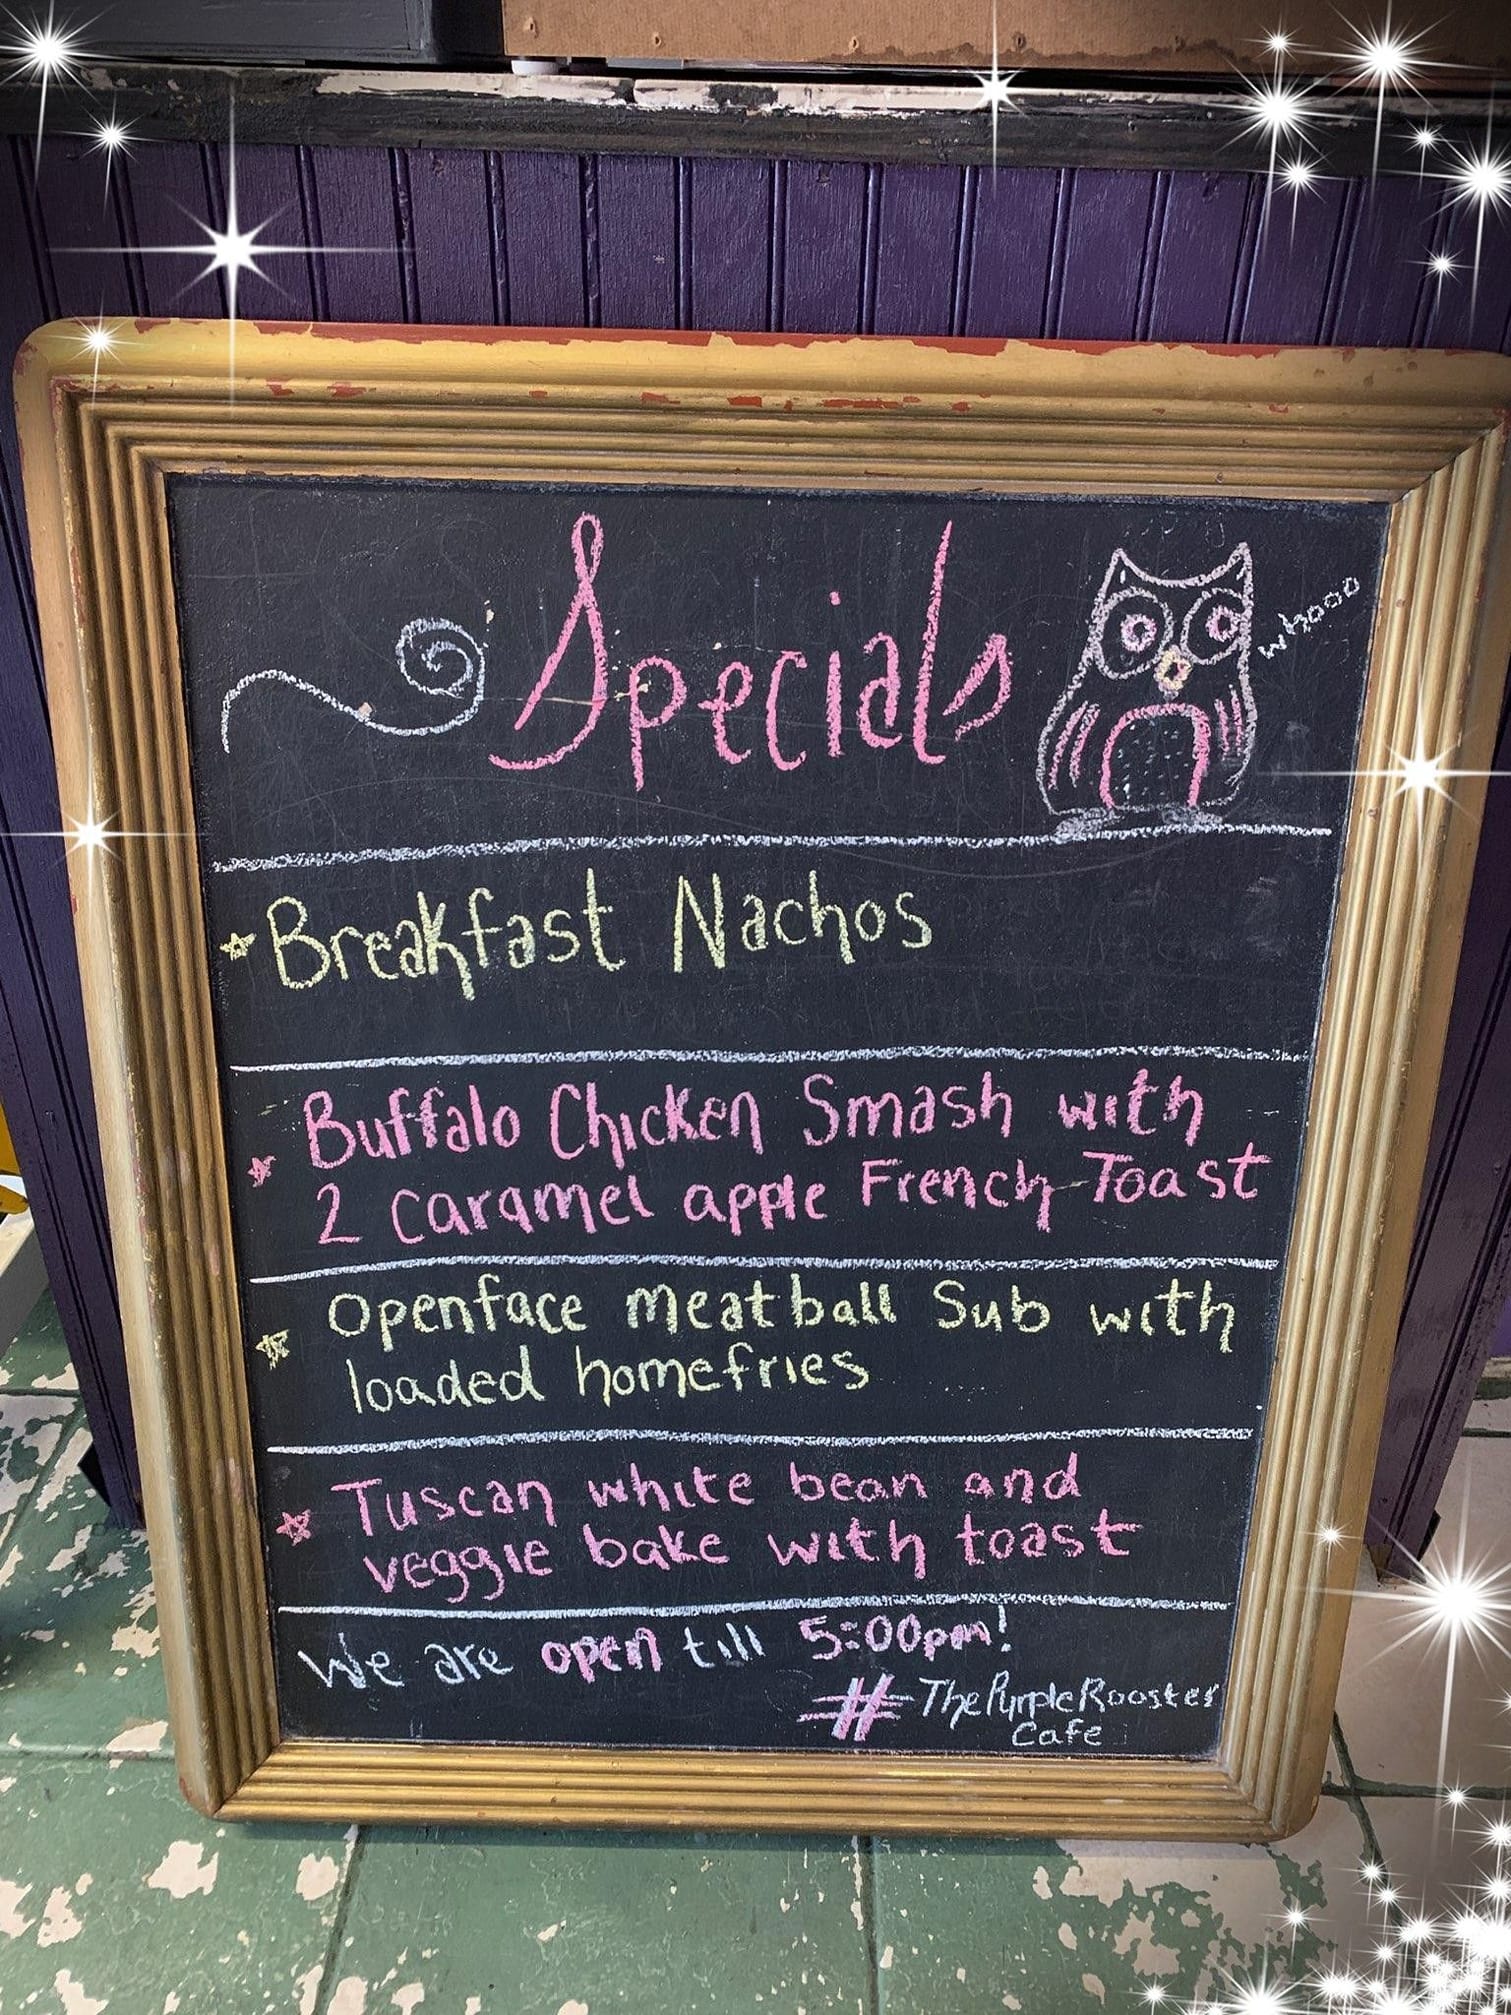 Specials
whooo
Breakfast Nachos
Buffalo Chicken Smash with
2 caramel apple French Toast
Openface meatball Sub with
loaded homefries
Tuscan white bean and
veggie bake with toast
We are open till 5:00pm!
#ThePurpleRooster
Cafe